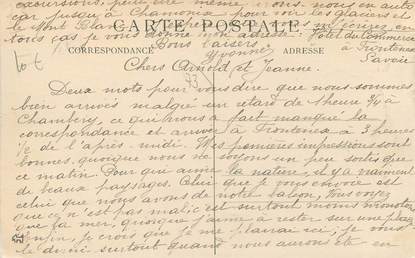 excursions, peut être même irons-nous en auto
car jusqu'à Chamonix pour voir les glaciers et
le Mont Blanc
CARTE POSTALE
tous cas je vous donne mon adresse: Hôtel du Commerce
CORRESPONDANCE
ADRESSE
à Frontenex
Bons baisers
Savoie
Yvonne
Chers Arnold et Jeanne.
Deux mots pour vous dire que nous sommes
bien arrivés malgré un retard de 1 heure 3/4 à
Chambéry, ce qui nous a fait manqué la
correspondance et arriver à Frontenex à 3 heures
1/2 de l'après-midi. Mes premières impressions sont
bonnes, quoique nous ne soyons un peu sortis que
ce matin. Pour qui aime la nature, il y a vraiment
de beaux paysages. Celui que je vous envoie est
celui que nous avons de notre salon, vous voyez
que ce n'est pas mal; c'est surtout moins monotone
que la mer, quoique j'aime à rester sur une plage
Enfin, je crois que je me plairai ici; je vous
le dirai surtout quand nous aurons été en